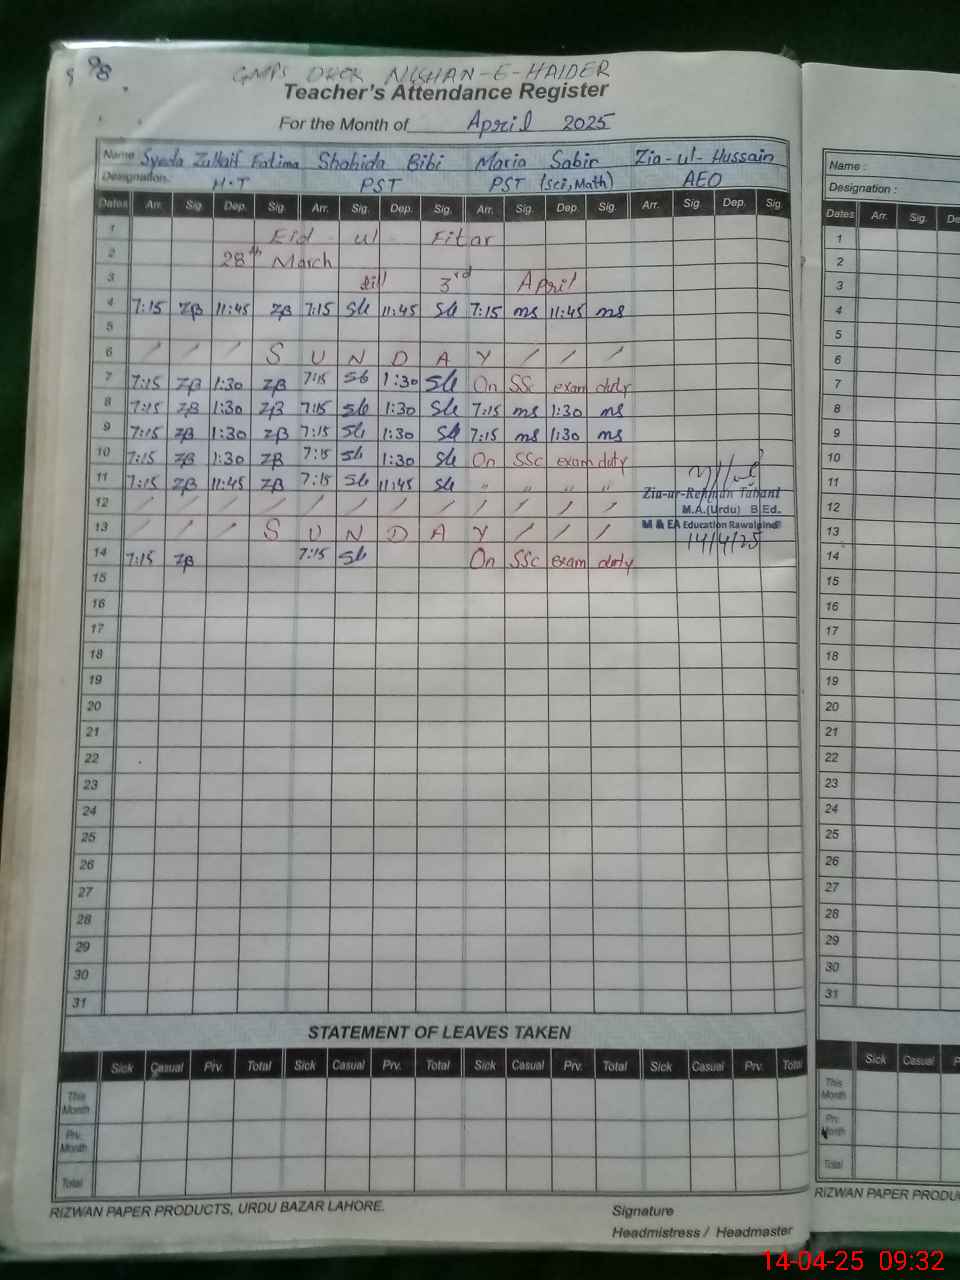 98
GMPS DHOK NISHAN-E-HAIDER
Teacher's Attendance Register
For the Month of April 2025
Name Syeda Fatima Shahida Bibi Maria Sabir Zia-ul-Hussain
Designation. H.T PST PST (Sci,Math) AEO
Dates Arr. Sig. Dep. Sig. Arr. Sig. Dep. Sig. Arr. Sig. Dep. Sig. Arr. Sig. Dep. Sig.
1 Eid ul Fitar
2 28th March
3 till 3rd April
4 7:15 ZB 11:45 ZB 7:15 Sb 11:45 Sb 7:15 ms 11:45 ms
5
6 / / / S U N D A Y / / /
7 7:15 ZB 1:30 ZB 7:15 Sb 1:30 Sb On SSc exam duty
8 7:15 ZB 1:30 ZB 7:15 Sb 1:30 Sb 7:15 ms 1:30 ms
9 7:15 ZB 1:30 ZB 7:15 Sb 1:30 Sb 7:15 ms 1:30 ms
10 7:15 ZB 1:30 ZB 7:15 Sb 1:30 Sb On SSc exam duty
11 7:15 ZB 11:45 ZB 7:15 Sb 11:45 Sb " " " "
Zia-ur-Rehman Tabani
12 / / / / / / / / / / / /
M.A.(Urdu) B.Ed.
13 / / / S U N D A Y / / /
M & EA Education Rawalpindi
14/4/25
14 7:15 ZB 7:15 Sb On SSc exam duty
15
16
17
18
19
20
21
22
23
24
25
26
27
28
29
30
31
STATEMENT OF LEAVES TAKEN
Sick Casual Prv. Total Sick Casual Prv. Total Sick Casual Prv. Total Sick Casual Prv. Total
This Month
Prv. Month
Total
RIZWAN PAPER PRODUCTS, URDU BAZAR LAHORE.
Signature
Headmistress / Headmaster
Name :
Designation :
Dates Arr. Sig. De
1
2
3
4
5
6
7
8
9
10
11
12
13
14
15
16
17
18
19
20
21
22
23
24
25
26
27
28
29
30
31
Sick Casual P
This Month
Prv. Month
Total
RIZWAN PAPER PRODU
14-04-25 09:32